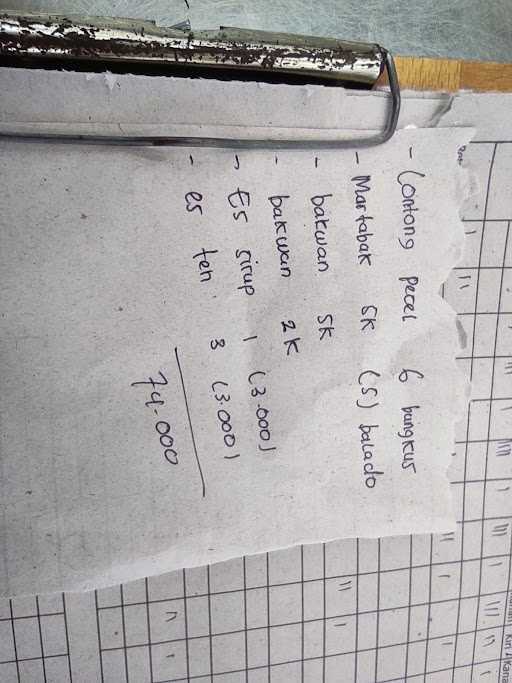 - Lontong pecel 6 bungkus
- Martabak 5k (5) balado
- bakwan 5k
- bakwan 2k
- Es sirup 1 (3.000)
- es teh 3 (3.000)
74.000